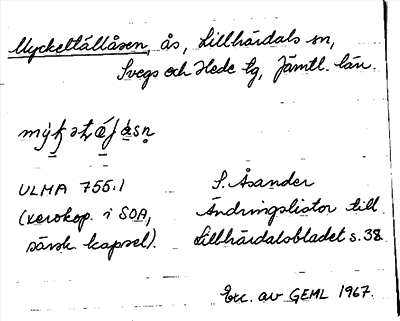 Myckeltällåsen, ås, Lillhärdals sn,
Svegs och Hede tg, Jämtl. län.
ULMA 755:1
(xerokop. i SOA,
särsk. kapsel).
S. Åsander
Ändringslistor till
Lillhärdalsbladet s. 38
Exc. av GEML 1967.